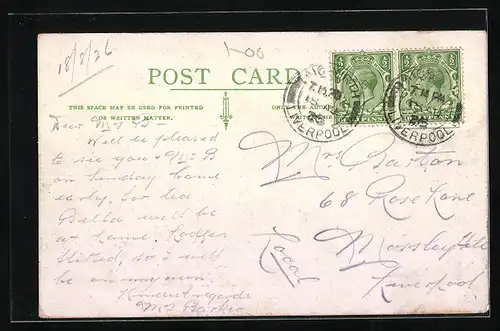 18/8/26
1-00
POST CARD
THIS SPACE MAY BE USED FOR PRINTED
OR WRITTEN MATTER.
ONLY THE
LIVERPOOL
LIVERPOOL
Dear Mrs B—
Will be pleased
to see you & Mr B
on Sunday Come
early. for tea
Bella will be
at home. Lodger
so I will
be on my own.
Kindest regards
Mrs
Mrs Barton
68 Rose Lane
Mossley Hill
Liverpool
Local